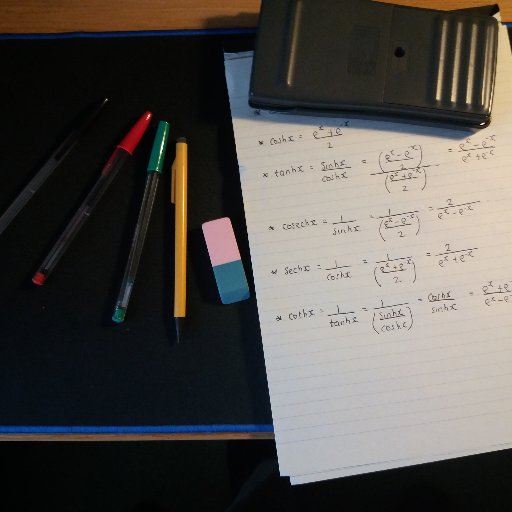 * coshx = (e^x + e^-x)/2
* tanhx = sinhx/coshx = ((e^x - e^-x)/2)/((e^x + e^-x)/2) = (e^x - e^-x)/(e^x + e^-x)
* cosechx = 1/sinhx = 1/((e^x - e^-x)/2) = 2/(e^x - e^-x)
* sechx = 1/coshx = 1/((e^x + e^-x)/2) = 2/(e^x + e^-x)
* cothx = 1/tanhx = 1/(sinhx/coshx) = coshx/sinhx =